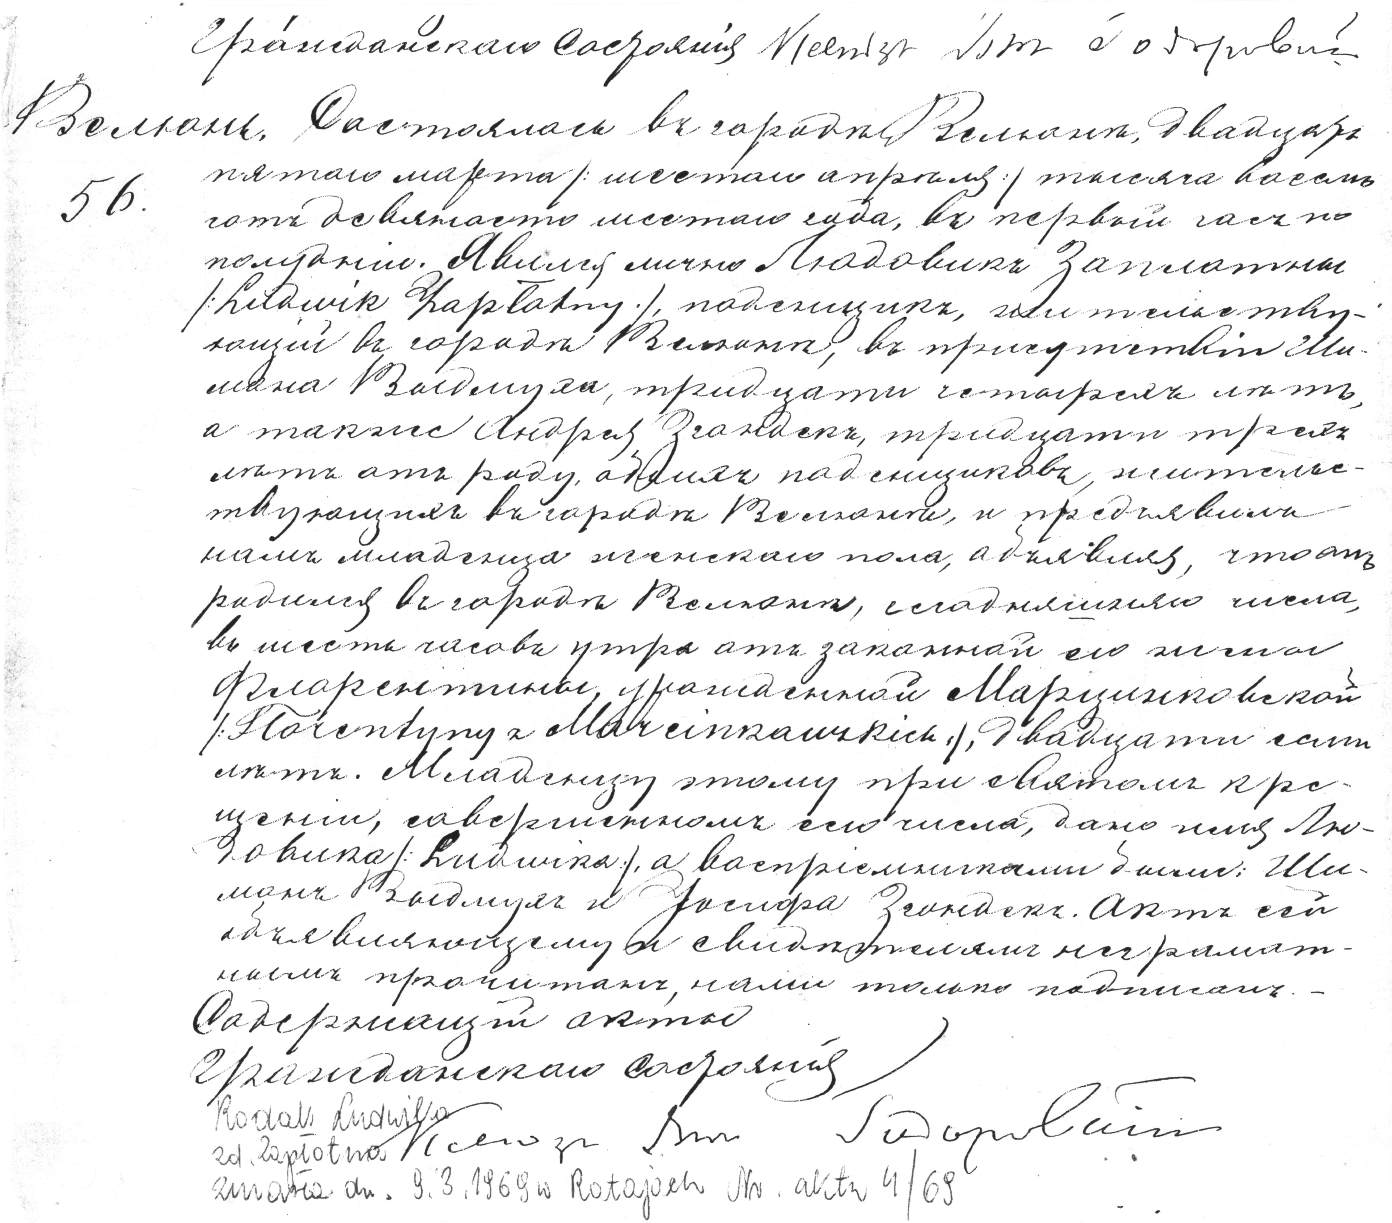 Гражданскаго Состоянія Ксендзъ
Велюнь. Состоялось въ городѣ Велюнѣ, двадцать
56. пятаго марта /: шестаго апрѣля :/ тысяча восемь
сотъ девяносто шестаго года, въ первый часъ по
полудніи. Явился лично Людовикъ Заплотны
/: Ludwik Zapłotny :/, поденщикъ, жительству-
ющій въ городѣ Велюнѣ, въ присутствіи Ши-
мона Выдмуха, тридцати четырехъ лѣтъ,
а также Андрея Згондекъ, тридцати трехъ
лѣтъ отъ роду, обоихъ поденщиковъ, жительс-
твующихъ въ городѣ Велюнѣ, и предъявилъ
намъ младенца женскаго пола, объявляя, что онъ
родился въ городѣ Велюнѣ, сегодняшняго числа,
въ шесть часовъ утра отъ законной его жены
Флорентины, урожденной Марцинковской
/: Florentyny z Marcinkowskich :/, двадцати семи
лѣтъ. Младенцу этому при святомъ кре-
щеніи, совершенномъ сего числа, дано имя Лю-
довика /: Ludwika :/, а воспріемниками были: Ши-
монъ Выдмухъ и Іосифа Згондекъ. Актъ сей
объявляющему и свидѣтелямъ неграмот-
нымъ прочитанъ, нами только подписанъ. –
Содержащій акты
Гражданскаго Состоянія
Rodak Ludwika
zd. Zapłotna Ксендзъ
zmarła dn. 9.3.1969 w Nr. aktu 4/69